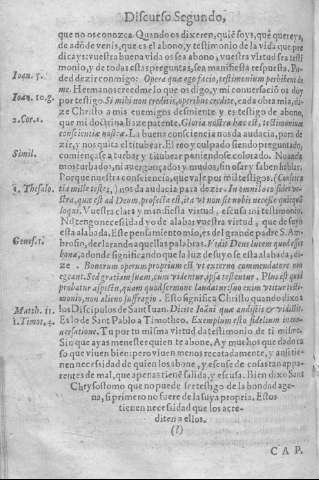 Discurso Segundo,
que no os conozca. Quando os dixeren, quiē soys, quē quereys,
de adōde venis, que es el abono, y testimonio de la vida que pre
dicays: vuestra buena vida os sea abono; vuestra vīrtud sea testi
monio, y de todas estas preguntas, sea manifiesta respuesta. Po-
Ioan. 5.
ded dezir conmigo: Opera quæ ego facio, testimonium perhibent de
me. Hermanos creedme lo que os digo, y mi conuersaciō os doy
Ioan. 10.g.
por testigo. Si mihi non creditis, operibus credite, cada obra mia, di-
ze Christo a mis enemigos desmiente y es testigo de abono,
2. Cor. 1.
que mi doctrina haze patente. Gloria nostra hæc est, testimonium
conscientiæ nostræ. La buena consciencia nos da audacia, para de
zir, y nos quita el titubear. El reo y culpado siendo preguntado,
Simil.
comiença se a turbar y titubear poniendose colorado. No anda
mos turbados, ni auergonçados y mudos, sin osar y saber hablar.
Porque nuestra consciencia, que vale por mil testigos. (Conscien
1. Thesalo.
tia mille testes,) nos da audacia para dezir. In omni loco fides ve-
stra, quæ est ad Deum, profecta est, ita vt non sit nobis necesse quicquā
loqui. Vuestra clara y manifiesta virtud, escusa mi testimonio.
No tengo necesidad yo de alabar vuestra virtud, que de suyo
esta alabada. Este pensamiento mio, es del grande padre S. Am-
Genes. 1.
brosio, declarando aquellas palabras. Vidit Deus lucem quod esset
bona, adonde significando que la luz de suyo se esta alabada, di-
ze. Bonorum operum proprium est vt externo commendatore non
egeant. Sed gratiam suam, cum videntur ipsa testentur. Plus est quod
probatur aspectu, quam quod sermone laudatur: suo enim vtitur testi-
monio, non alieno suffragio. Esto significa Christo quando dixo a
Matth. 11.
los Discipulos de San Iuan. Dicite Ioāni quæ audistis & vidistis.
1. Timot. 4.
Es lo de San Pablo a Timotheo. Exemplum esto fidelium in con-
uersatione. Tu por tu misma virtud da testimonio de ti mismo.
Sin que ayas menester quien te abone. Ay muchos que dado ca
so que viuen bien: pero viuen menos recatadamente, y ansi tie-
nen necessidad de quien los abone, y escuse de cosas tan appa-
rentes de mal, que apenas tienē salida, y escusa. Bien dixo Sant
Chrysostomo que no puede ser testigo de la bondad age-
na, si primero no fuere de la suya propria. Estos
tienen necessidad que los acre-
diten a ellos.
(?)
CAP.